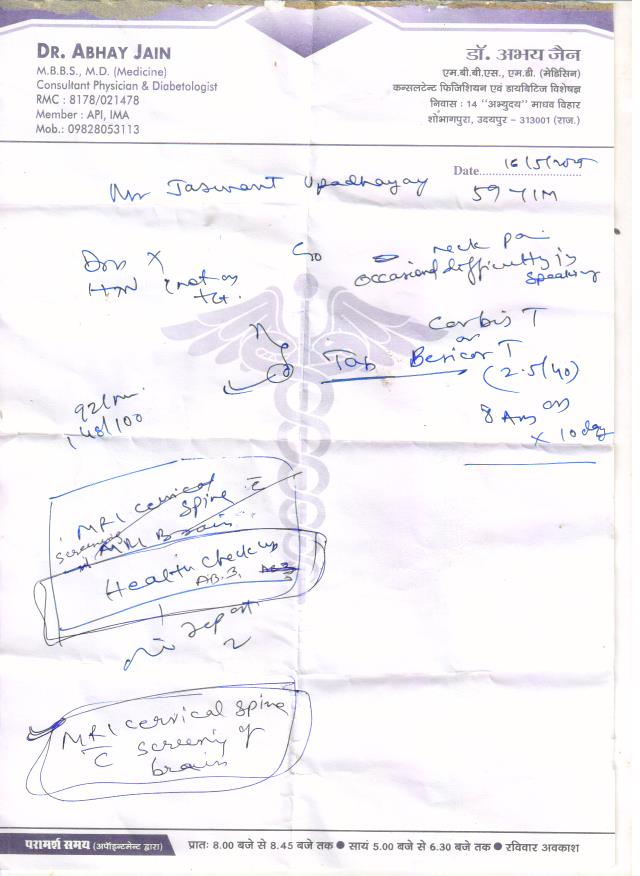 DR. ABHAY JAIN
M.B.B.S., M.D. (Medicine)
Consultant Physician & Diabetologist
RMC : 8178/021478
Member : API, IMA
Mob.: 09828053113
डॉ. अभय जैन
एम.बी.बी.एस., एम.डी. (मेडिसिन)
कन्सलटेन्ट फिजिशियन एवं डायबिटिज विशेषज्ञ
निवास : 14 "अभ्युदय" माधव विहार
शोभागपुरा, उदयपुर – 313001 (राज.)
Date 16/5/2025
Mr Jaswant Upadhayay 59 Y/M
C/o neck pai
occasional difficulty in speaking
HTN (not on
Tab
or
Besicor T
(2.5/40)
8 Am
x 10 day
92/mi
148/100
MRI cervical
spine c̄
screening
MRI Brain
Health check up
AB.3,
report
MRI cervical spine
c̄ screening of
brain
परामर्श समय (अपॉइन्टमेन्ट द्वारा)
प्रातः 8.00 बजे से 8.45 बजे तक ● सायं 5.00 बजे से 6.30 बजे तक ● रविवार अवकाश